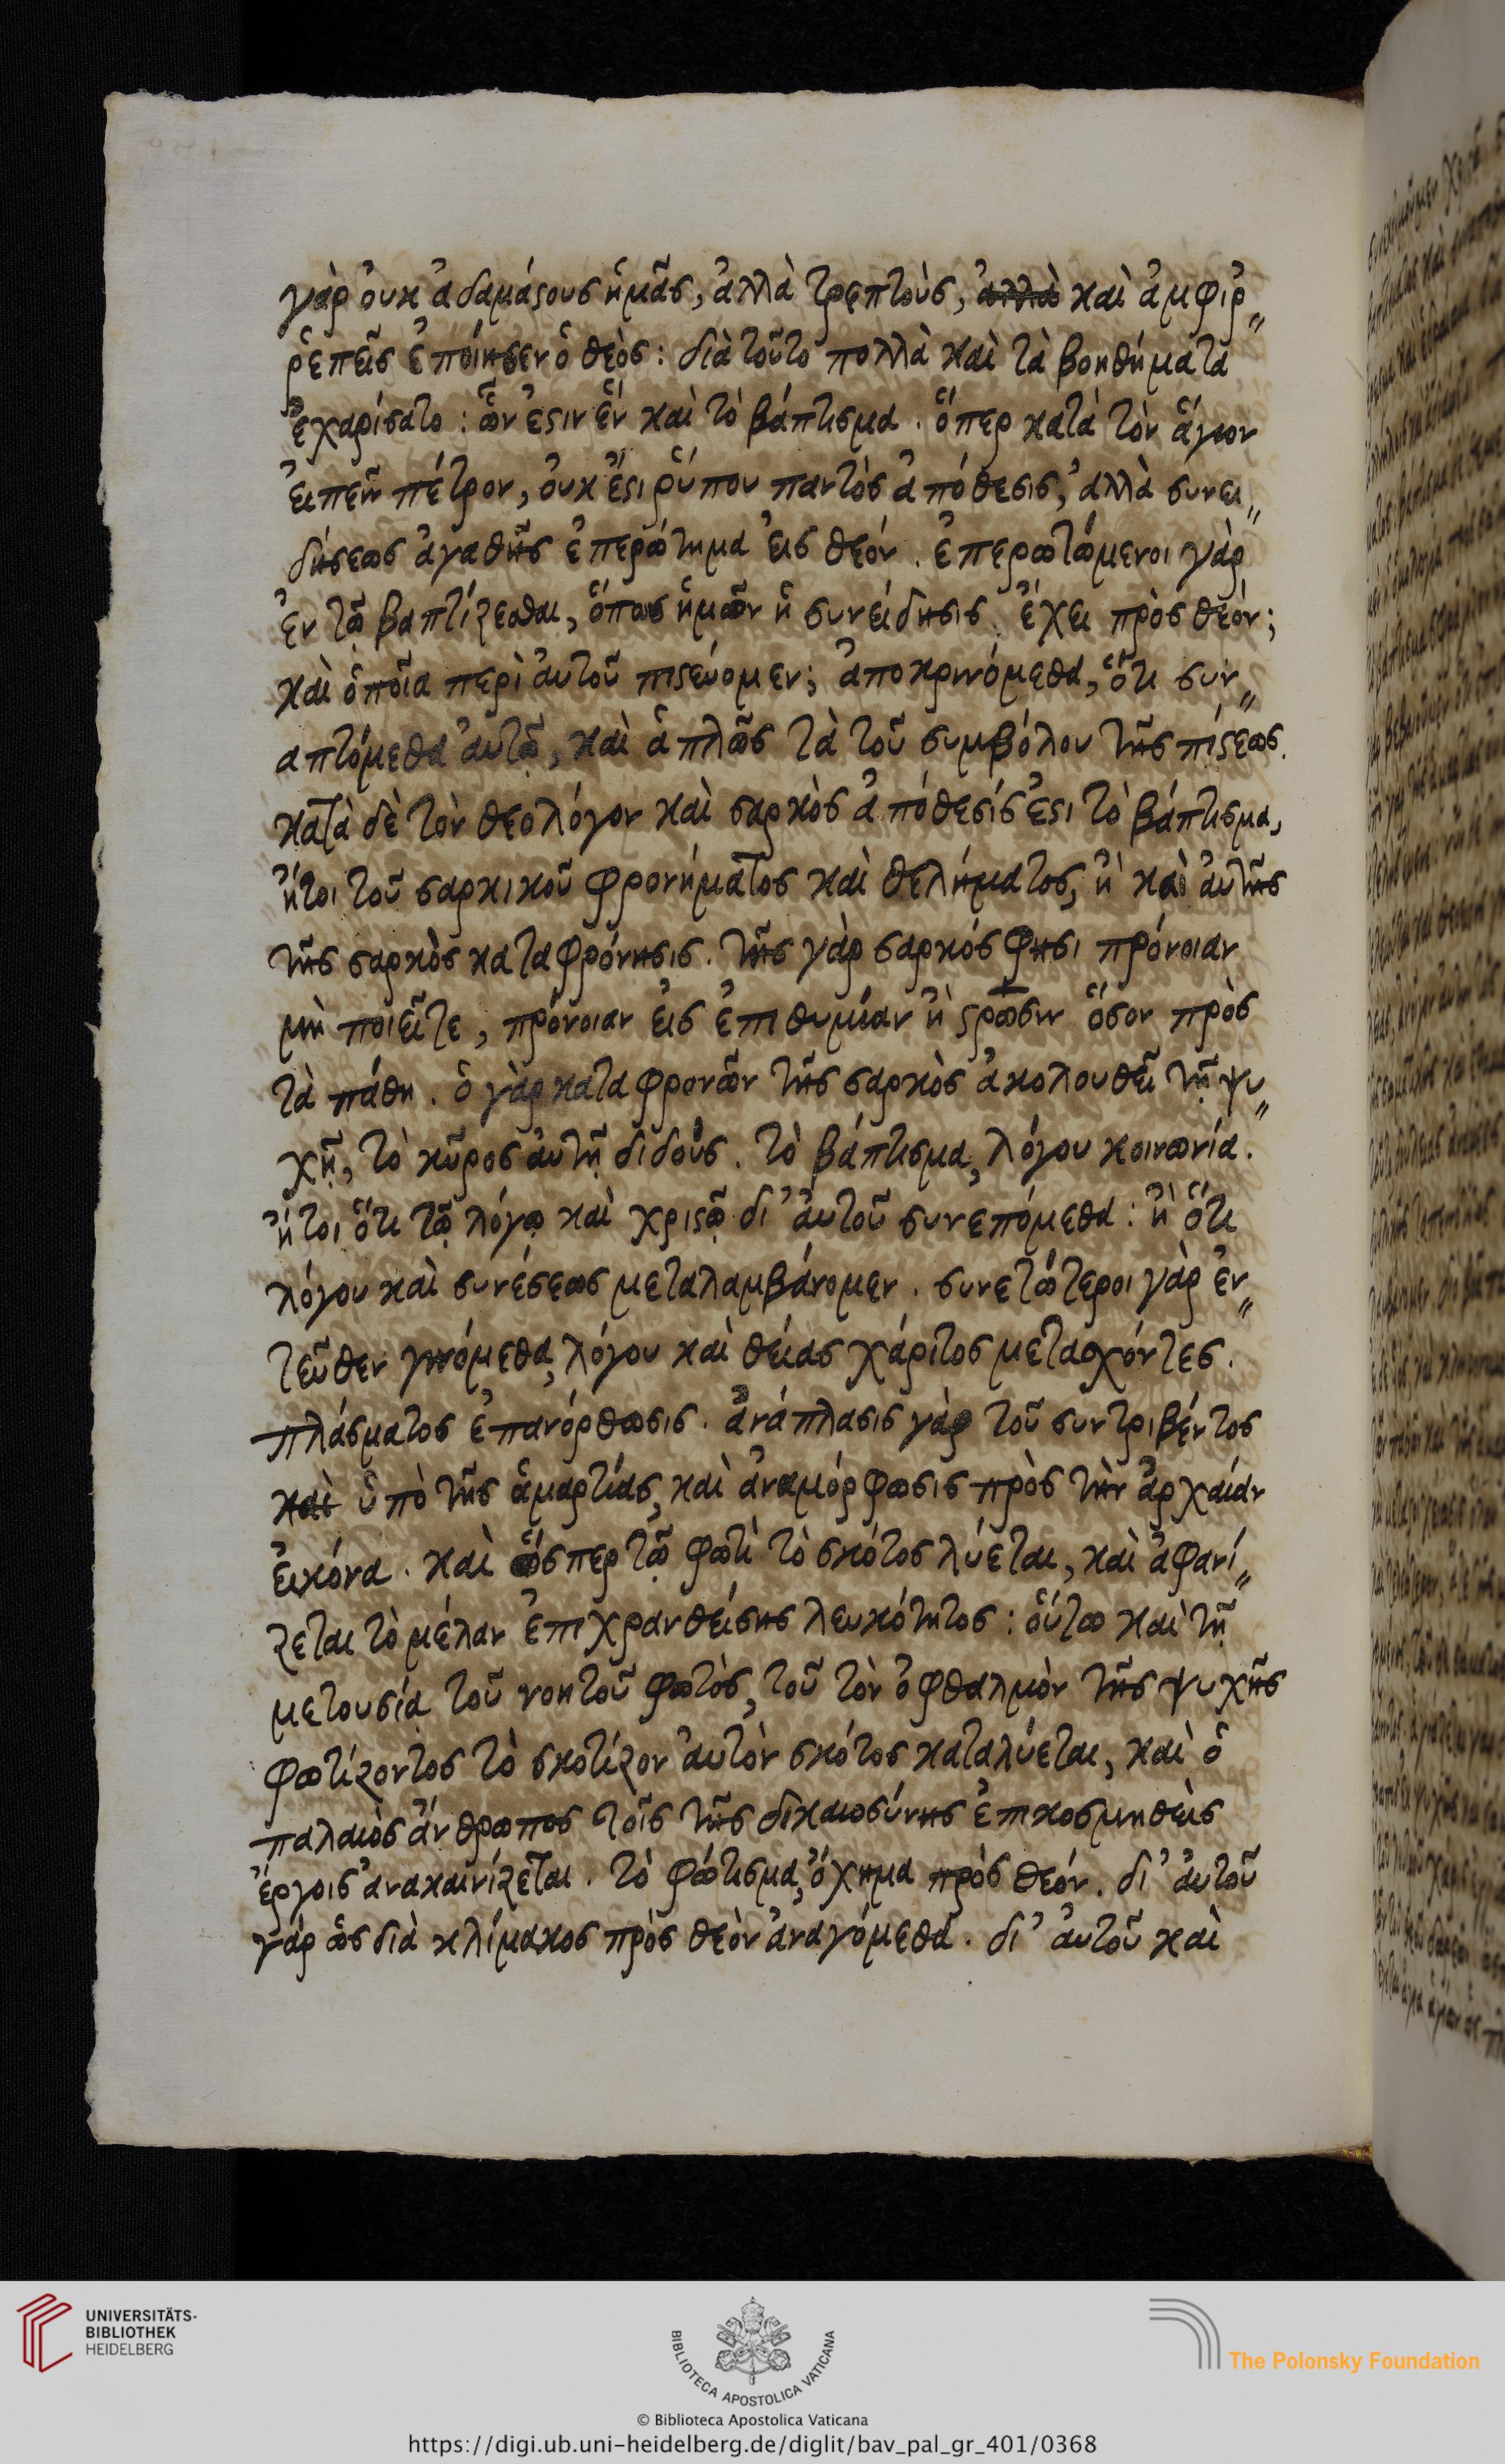 γὰρ οὐκ ἀδαμάστους ἡμᾶς, ἀλλὰ τρεπτοὺς, ἀλλὰ καὶ ἀμφιρ„
ῥεπεῖς ἐποίησεν ὁ θεὸς: διὰ τοῦτο πολλὰ καὶ τὰ βοηθήματα
ἐχαρίσατο: ὧν ἐστιν ἓν καὶ τὸ βάπτισμα. ὅπερ κατὰ τὸν ἅγιον
εἰπεῖν πέτρον, οὐκ ἔστι ῥύπου παντὸς ἀπόθεσις, ἀλλὰ συνει„
δήσεως ἀγαθῆς ἐπερώτημα εἰς θεόν. ἐπερωτώμενοι γὰρ
ἐν τῷ βαπτίζεσθαι, ὅπως ἡμῶν ἡ συνείδησις ἔχει πρὸς θεόν;
καὶ ὁποῖα περὶ αὐτοῦ πιστεύομεν; ἀποκρινόμεθα, ὅτι συν„
απτόμεθα αὐτῷ, καὶ ἁπλῶς τὰ τοῦ συμβόλου τῆς πίστεως.
κατὰ δὲ τὸν θεολόγον καὶ σαρκὸς ἀπόθεσίς ἐστι τὸ βάπτισμα,
ἤτοι τοῦ σαρκικοῦ φρονήματος καὶ θελήματος, ἢ καὶ αὐτῆς
τῆς σαρκὸς καταφρόνησις. τῆς γὰρ σαρκός φησι πρόνοιαν
μὴ ποιεῖτε, πρόνοιαν εἰς ἐπιθυμίαν ἢ στρῶσιν ὅσον πρὸς
τὰ πάθη. ὁ γὰρ καταφρονῶν τῆς σαρκὸς ἀκολουθεῖ τῇ ψυ„
χῇ, τὸ κῦρος αὐτῇ διδούς. τὸ βάπτισμα, λόγου κοινωνία.
ἤτοι ὅτι τῷ λόγῳ καὶ χριστῷ δι' αὐτοῦ συνεπόμεθα: ἢ ὅτι
λόγου καὶ συνέσεως μεταλαμβάνομεν. συνετώτεροι γὰρ ἐν„
τεῦθεν γινόμεθα, λόγου καὶ θείας χάριτος μετασχόντες.
πλάσματος ἐπανόρθωσις. ἀνάπλασις γὰρ τοῦ συντριβέντος
καὶ ὑπὸ τῆς ἁμαρτίας, καὶ ἀναμόρφωσις πρὸς τὴν ἀρχαίαν
εἰκόνα. καὶ ὥσπερ τῷ φωτὶ τὸ σκότος λύεται, καὶ ἀφανί„
ζεται τὸ μέλαν ἐπιχρανθείσης λευκότητος: οὕτω καὶ τῇ
μετουσίᾳ τοῦ νοητοῦ φωτὸς, τοῦ τὸν ὀφθαλμὸν τῆς ψυχῆς
φωτίζοντος τὸ σκοτίζον αὐτὸν σκότος καταλύεται, καὶ ὁ
παλαιὸς ἄνθρωπος τοῖς τῆς δικαιοσύνης ἐπικοσμηθεὶς
ἔργοις ἀνακαινίζεται. τὸ φώτισμα, ὄχημα πρὸς θεόν. δι' αὐτοῦ
γὰρ ὡς διὰ κλίμακος πρὸς θεὸν ἀναγόμεθα. δι' αὐτοῦ καὶ
UNIVERSITÄTS-
BIBLIOTHEK
HEIDELBERG
BIBLIOTECA APOSTOLICA VATICANA
The Polonsky Foundation
© Biblioteca Apostolica Vaticana
https://digi.ub.uni-heidelberg.de/diglit/bav_pal_gr_401/0368